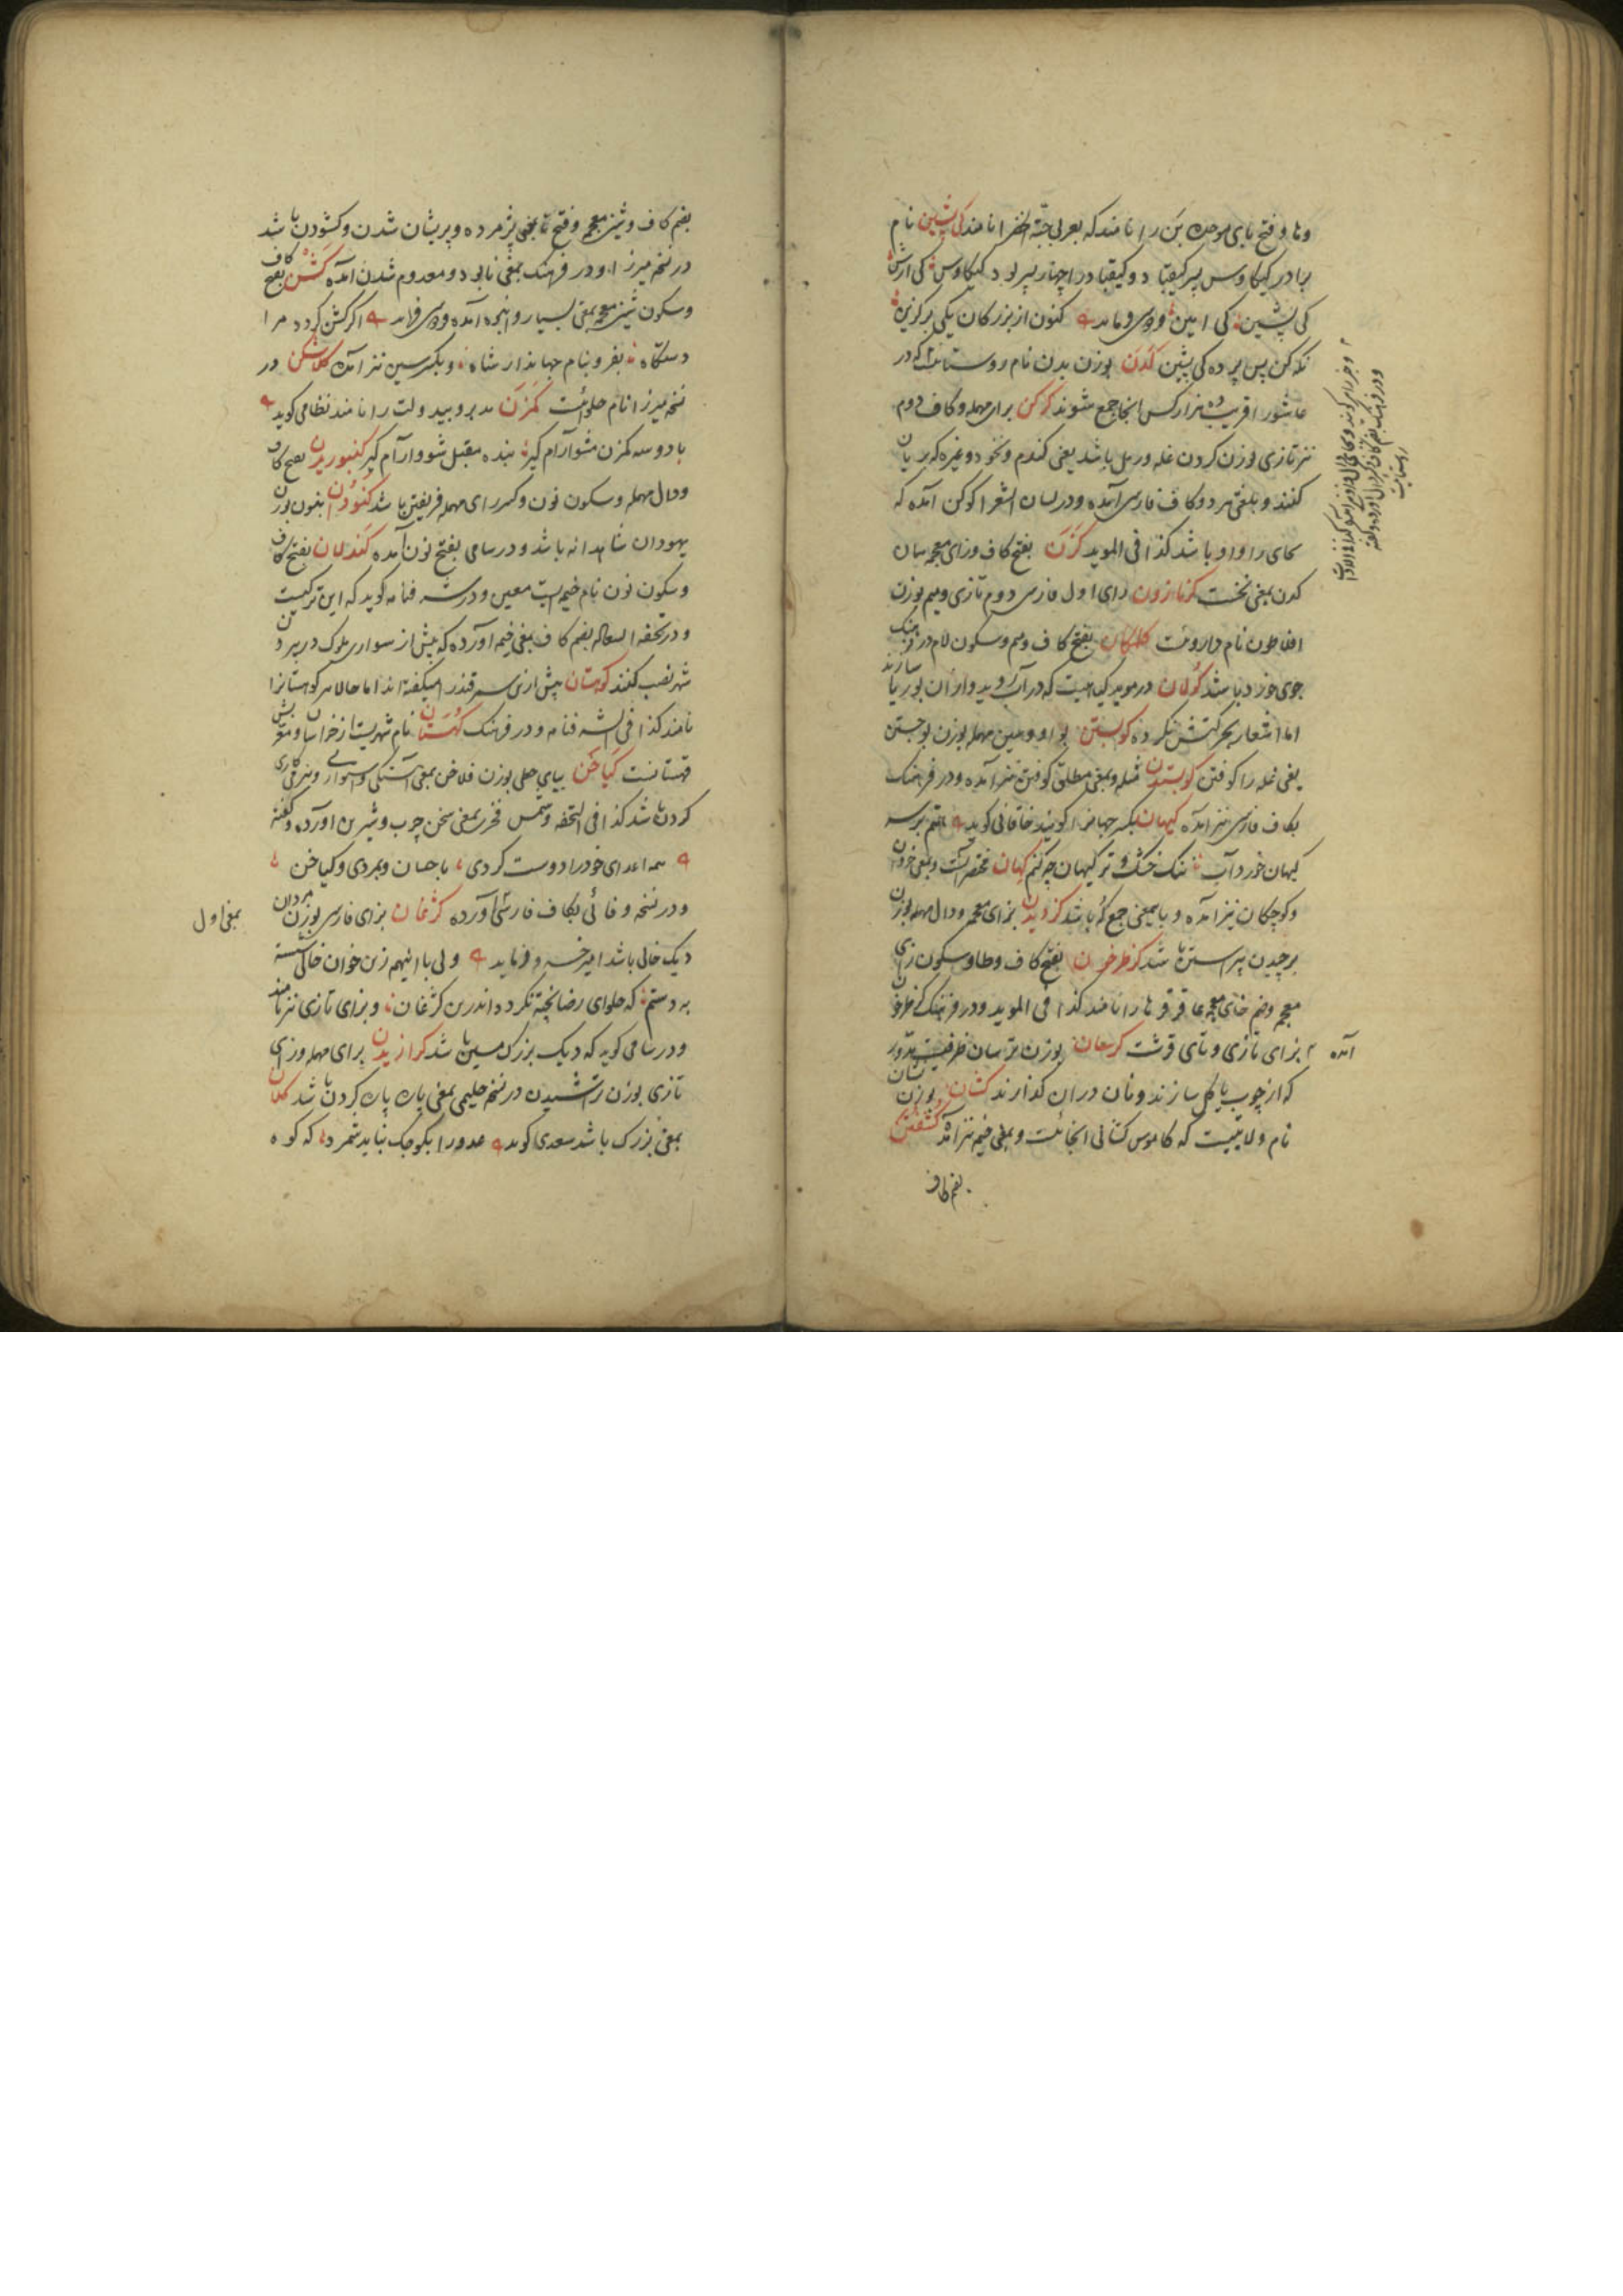 وها و فتح بای موحده بن را نامند که بعربی حبة الخضرا نامند کی پشین نام
برادر کیکاوس پسر کیقباد و کیقباد را چهار پسر بود کیکاوس کی ارش
کی پشین کی امین فردوسی فرماید کنون از بزرگان یکی برگزین
نگه کن پس پرده کی پشین کدن بوزن بدن نام روستائیست که در
عاشورا قریب ده هزار کس آنجا جمع شوند کرکن برای مهمله و کاف دوم
نیز تازی بوزن کردن غله و رمل باشد یعنی گندم و نخود و غیره که بریان
کنند و بلغتی هر دو کاف فارسی آمده و در لسان الشعرا کوکن آمده که
بجای را واو باشد کذا فی الموید کزن بفتح کاف و زای معجمه بسان
کدن بمعنی نخست کرمازون رای اول فارسی دوم تازی و میم بوزن
افلاطون نام داروئیست کلکان بفتح کاف و سکون لام در فرهنگ
جوی خرد باشد کولان در موید گیاهیست که در آب روید و از آن بوریا سازند
اما اشعار بحرکتش نکرده کوبستن بواو و سین مهمله بوزن بوجستن
یعنی غله را کوفتن کوبستیدن مثله و بمعنی مطلق کوفتن نیز آمده و در فرهنگ
بکاف فارسی نیز آمده کیهان بکسر جهان را گویند خاقانی گوید
کیهان خورد آب ننگ خشک و تر کیهان چه کنم کهان مختصر آنست و بمعنی خردان
و کوچکان نیز آمده و بایمعنی جمع که باشد کزویدن بزای معجمه و دال مهمله بوزن
برچیدن پرستن باشد کزطرخون بفتح کاف و طا و سکون زای
معجمه و ضم خای معجمه عاقرقرحا را نامند کذا فی الموید و در فرهنگ کلخرخون
بزای تازی و تای قرشت کرسان بوزن ترسان ظرفیست مدور
آمده
که از چوب یا گل سازند و نان در آن گذارند کشان بوزن نشان
نام ولایتیست که کاموس کشانی آنجائیست و بمعنی خیمه نیز آمده کشفتن
بضم کاف
بضم کاف و شین معجمه و فتح تا بمعنی پژمرده و پریشان شدن و گشودن باشد
در نسخه میرزا و در فرهنگ بمعنی نابود و معدوم شدن آمده کشن بفتح کاف
و سکون شین معجمه بمعنی بسیار و انبوه آمده فردوسی فرماید اگر کشن گردد مرا
دستگاه بفر و بنام جهاندار شاه و بکسر سین نیز آمده کلاشکن در
نسخه میرزا نام حلوائیست کمزن مدبر و بیدولت را نامند نظامی گوید
با دو سه کمزن مشو آرام گیر بنده مقبل شو و آرام گیر کنبوریدن بفتح کاف
و دال مهمله و سکون نون و کسر رای مهمله فریفتن باشد کنودن بنون بوزن
یهودان شاهدانه باشد و در سامی بفتح نون آمده کندلان بفتح کاف
و سکون نون نام خیمه ایست معین و در شرفنامه گوید که این ترکیست
و در تحفه السعاده بضم کاف بمعنی خیمه آورده که پیش از سواری ملوک در بیرون
شهر نصب کنند کوهستان پیش ازین سمرقند را میگفته اند اما حالا هر کوهستان را
نامند کذا فی الشرفنامه و در فرهنگ کهستان نام شهریست از خراسان و معربش
قهستانست کیاخن بیای حطی بوزن فلاخن بمعنی آهستگی و همواری و بنرمی کاری
کردن باشد کذا فی التحفه و شمس فخری بمعنی سخن چرب و شیرین آورده و گفته
همه اعدای خود را دوست کردی باحسان و بمردی و کیاخن
و در نسخه وفائی بکاف فارسی آورده کژغان بزای فارسی بوزن مردان
بمعنی اول
دیک خالی باشد امیر خسرو فرماید ولی با اینهمه زین خوان خاکی شسته
به دستم که حلوای رضا پخته نگردد اندرین کژغان و بزای تازی نیز نامند
و در سامی گوید که دیک بزرک مسین باشد کرازیدن برای مهمله و زای
تازی بوزن تراشیدن در نسخه حلیمی بمعنی پاره پاره کردن باشد کلان
بمعنی بزرک باشد سعدی گوید عدو را بکوچک نباید شمرد که کوه